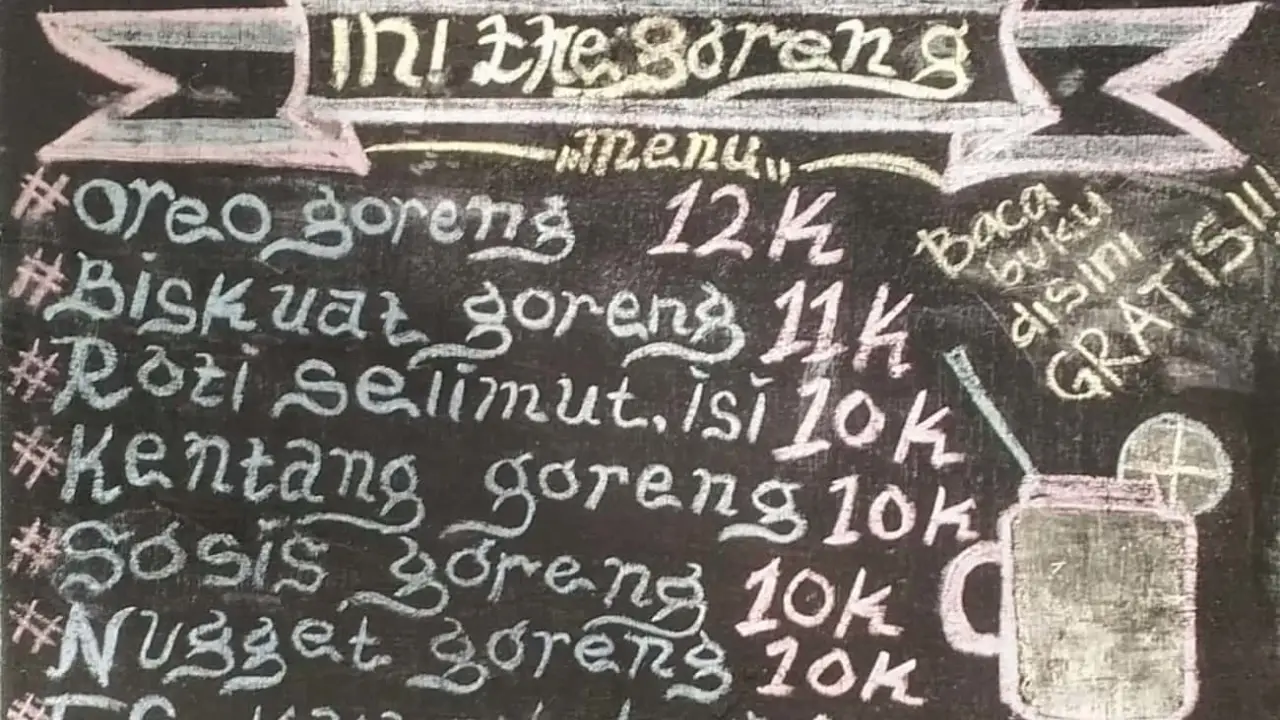 ini the goreng
"menu"
#oreo goreng 12K
#Biskuat goreng 11K
#Roti selimut. isi 10k
#kentang goreng 10k
#Sosis goreng 10k
#Nugget goreng 10k
Baca
buku
disini
GRATIS!!!